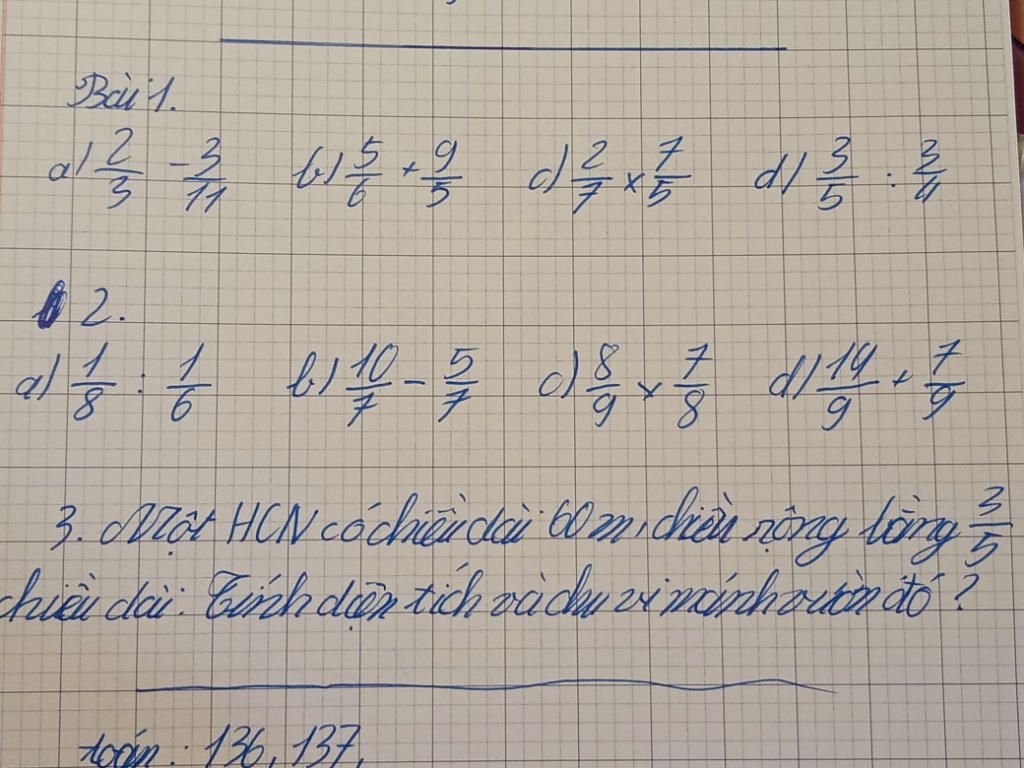 Bài 1.
a) 2/3 - 3/11 b) 5/6 + 9/5 c) 2/7 x 7/5 d) 3/5 : 3/4
2.
a) 1/8 : 1/6 b) 10/7 - 5/7 c) 8/9 x 7/8 d) 14/9 + 7/9
3. Một HCN có chiều dài 60m, chiều rộng bằng 3/5
chiều dài. Tính diện tích và chu vi mảnh vườn đó?
toán: 136, 137.